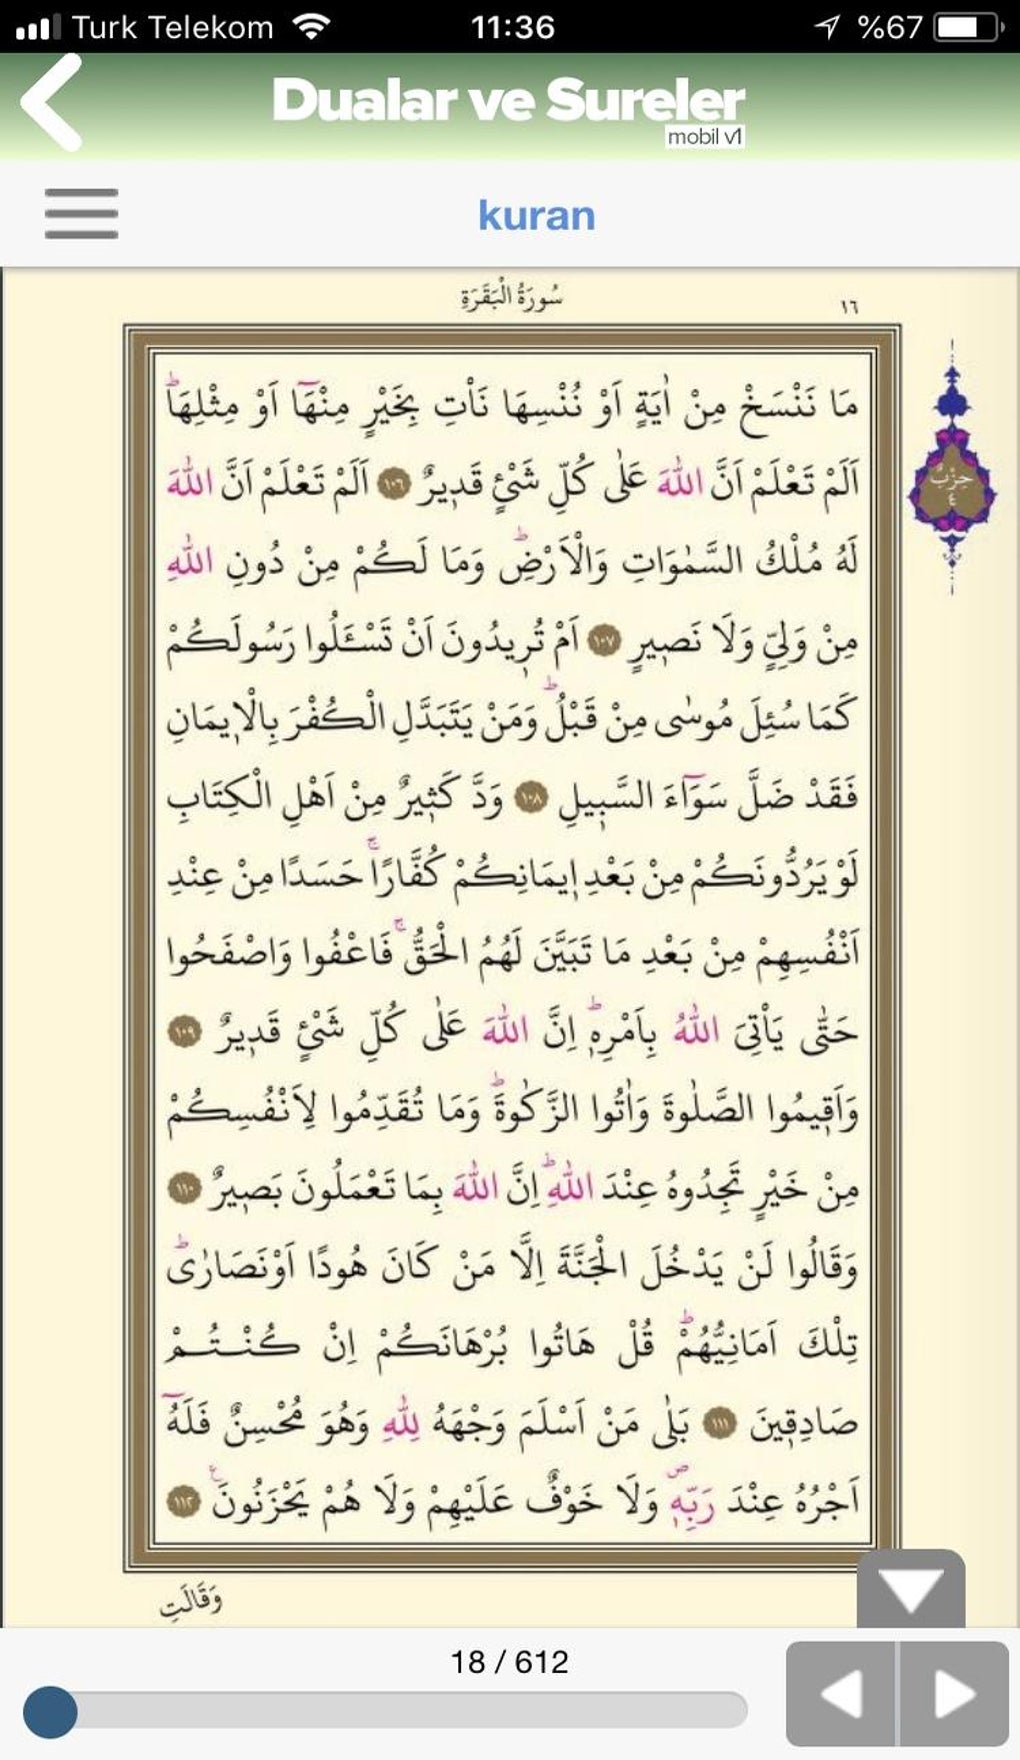 Turk Telekom 11:36 %67
Dualar ve Sureler
mobil v1
kuran
سُورَةُ الْبَقَرَةِ ١٦
مَا نَنْسَخْ مِنْ اٰيَةٍ اَوْ نُنْسِهَا نَأْتِ بِخَيْرٍ مِنْهَٓا اَوْ مِثْلِهَاۜ
اَلَمْ تَعْلَمْ اَنَّ اللّٰهَ عَلٰى كُلِّ شَيْءٍ قَد۪يرٌ ١٠٦ اَلَمْ تَعْلَمْ اَنَّ اللّٰهَ
حِزْبٌ
٤
لَهُ مُلْكُ السَّمٰوَاتِ وَالْاَرْضِۜ وَمَا لَكُمْ مِنْ دُونِ اللّٰهِ
مِنْ وَلِيٍّ وَلَا نَص۪يرٍ ١٠٧ اَمْ تُر۪يدُونَ اَنْ تَسْـَٔلُوا رَسُولَكُمْ
كَمَا سُئِلَ مُوسٰى مِنْ قَبْلُۜ وَمَنْ يَتَبَدَّلِ الْكُفْرَ بِالْا۪يمَانِ
فَقَدْ ضَلَّ سَوَٓاءَ السَّب۪يلِ ١٠٨ وَدَّ كَث۪يرٌ مِنْ اَهْلِ الْكِتَابِ
لَوْ يَرُدُّونَكُمْ مِنْ بَعْدِ ا۪يمَانِكُمْ كُفَّارًاۚ حَسَدًا مِنْ عِنْدِ
اَنْفُسِهِمْ مِنْ بَعْدِ مَا تَبَيَّنَ لَهُمُ الْحَقُّۚ فَاعْفُوا وَاصْفَحُوا
حَتّٰى يَأْتِيَ اللّٰهُ بِاَمْرِه۪ۜ اِنَّ اللّٰهَ عَلٰى كُلِّ شَيْءٍ قَد۪يرٌ ١٠٩
وَاَق۪يمُوا الصَّلٰوةَ وَاٰتُوا الزَّكٰوةَۜ وَمَا تُقَدِّمُوا لِاَنْفُسِكُمْ
مِنْ خَيْرٍ تَجِدُوهُ عِنْدَ اللّٰهِۜ اِنَّ اللّٰهَ بِمَا تَعْمَلُونَ بَص۪يرٌ ١١٠
وَقَالُوا لَنْ يَدْخُلَ الْجَنَّةَ اِلَّا مَنْ كَانَ هُودًا اَوْ نَصَارٰىۜ
تِلْكَ اَمَانِيُّهُمْۜ قُلْ هَاتُوا بُرْهَانَكُمْ اِنْ كُنْتُمْ
صَادِق۪ينَ ١١١ بَلٰى مَنْ اَسْلَمَ وَجْهَهُ لِلّٰهِ وَهُوَ مُحْسِنٌ فَلَهُٓ
اَجْرُهُ عِنْدَ رَبِّه۪ۖ وَلَا خَوْفٌ عَلَيْهِمْ وَلَا هُمْ يَحْزَنُونَ۟ ١١٢
وَقَالَتِ
18 / 612